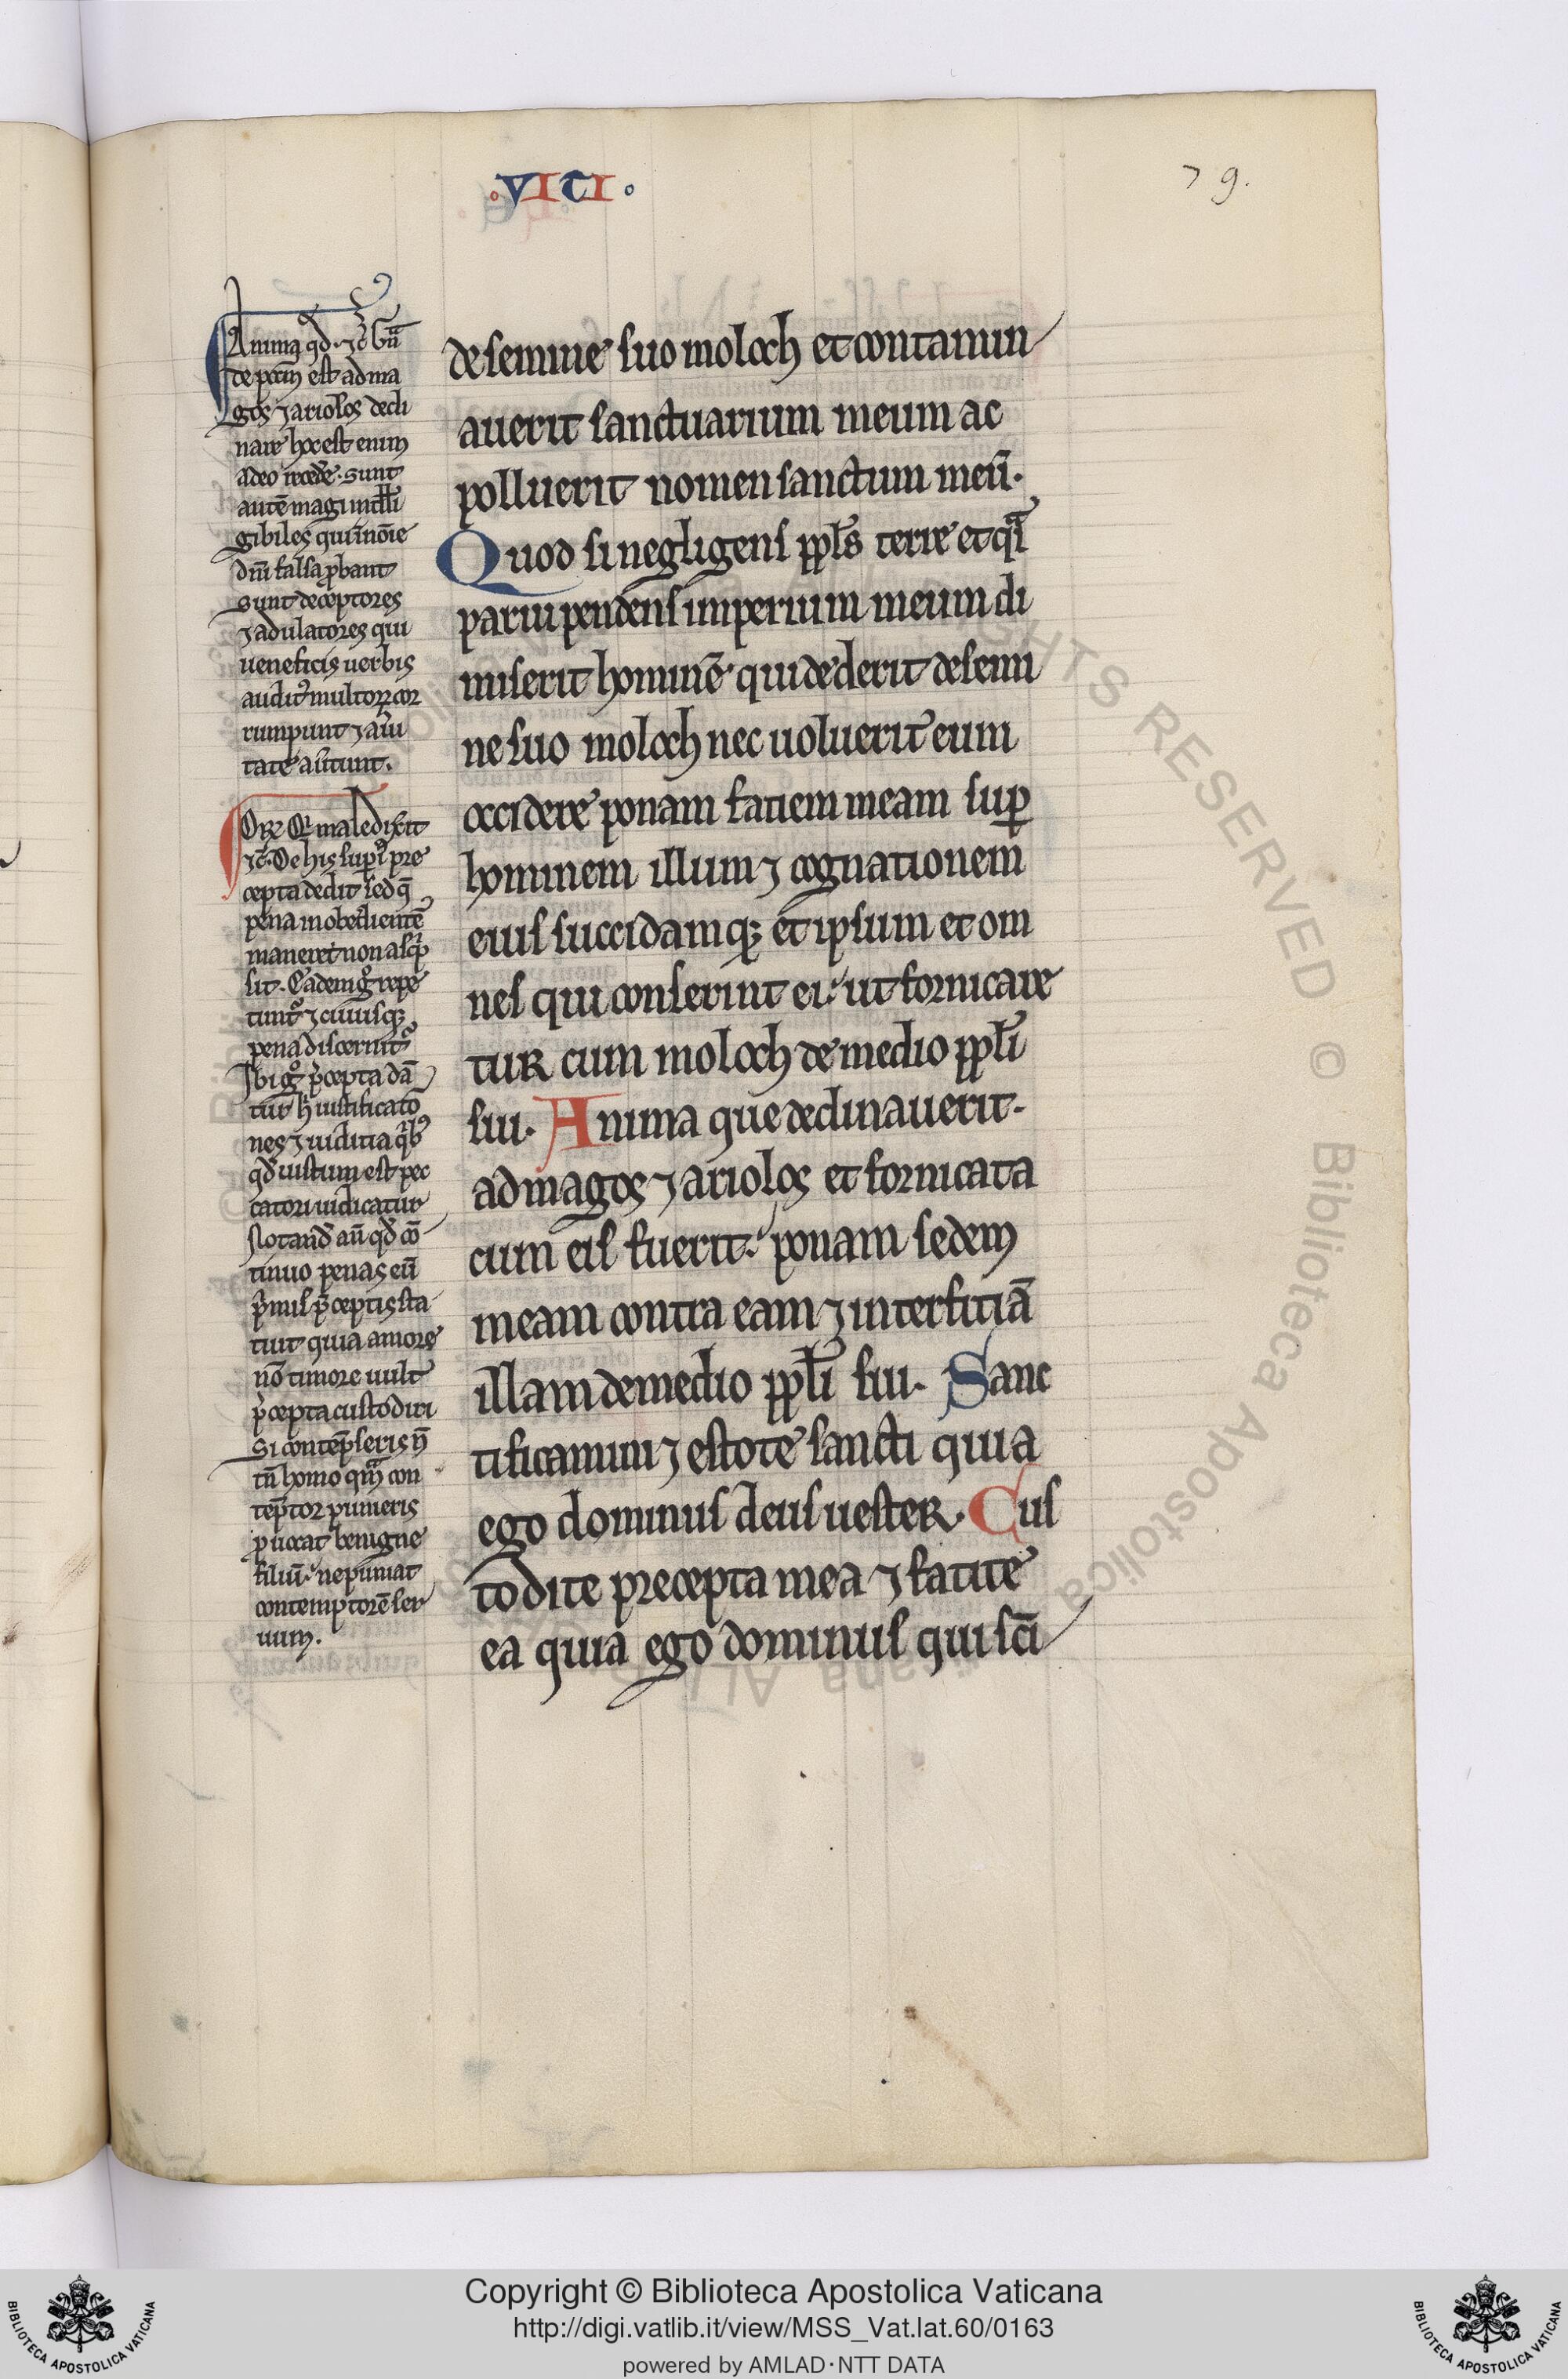 .VITI.
79.
Anima q̄ d. ⁊c̄ Gͣue
te pctm̄ est ad ma
gos ⁊ ariolos decli
nare hoc est enim
a deo recedē. sunt
autē magi intelli
gibiles qui ī noīe
dnī falsa ꝓbant
sunt deceptores
⁊ adulatores qui
ueneficis uerbis
auditꝰ multorꝝ cor
rumpunt ⁊ a ūi
tate autunt.
maledixit
⁊c̄. De his sup̄ī pre
cepta dedit sed q̄
pena inobedientē
maneret non asc͛p
sit. Eadem gͦ repe
tunt᷑ ⁊ cuiusqꝫ
pena discernit᷑
Ibi gͦ p̄cepta dā
tur h̄ iustificatō
nes ⁊ iuditia q̄bꝰ
qd̄ iustum est pec
catori iudicatur
Notand̄ aū qd̄ cō
tinuo penas cū
p̄mis p̄ceptis sta
tuit quia amore
nō timore uult
p̄cepta custodiri
Si contēpseris ū
tn̄ homo qͣm con
tēptor punieris
ꝓuocat benigne
filiū. ne puniat
contemptorē ser
uum.
de semine suo moloch et contamin
auerit sanctuarium meum ac
polluerit nomen sanctum meū.
Quod si negligens ppl̄s terre et qͣi
parui pendens imperium meum di
miserit hominē qui dederit de semi
ne suo moloch nec uoluerit eum
occidere ponam fatiem meam suꝑ
hominem illum ⁊ cognationem
eius succidamqꝫ et ipsum et om
nes qui conserint ei. ut fornicare
tur cum moloch de medio ppl̄i
sui. Anima que declinauerit
ad magos ⁊ ariolos et fornicata
cum eis fuerit. ponam sedem
meam contra eam ⁊ interfitiā
illam de medio ppl̄i sui. Sanc
tificamini ⁊ estote sancti quia
ego dominus deus uester. Cus
todite precepta mea ⁊ fatite
ea quia ego dominus qui sc̄i
Copyright © Biblioteca Apostolica Vaticana
http://digi.vatlib.it/view/MSS_Vat.lat.60/0163
powered by AMLAD·NTT DATA
BIBLIOTECA APOSTOLICA VATICANA
BIBLIOTECA APOSTOLICA VATICANA